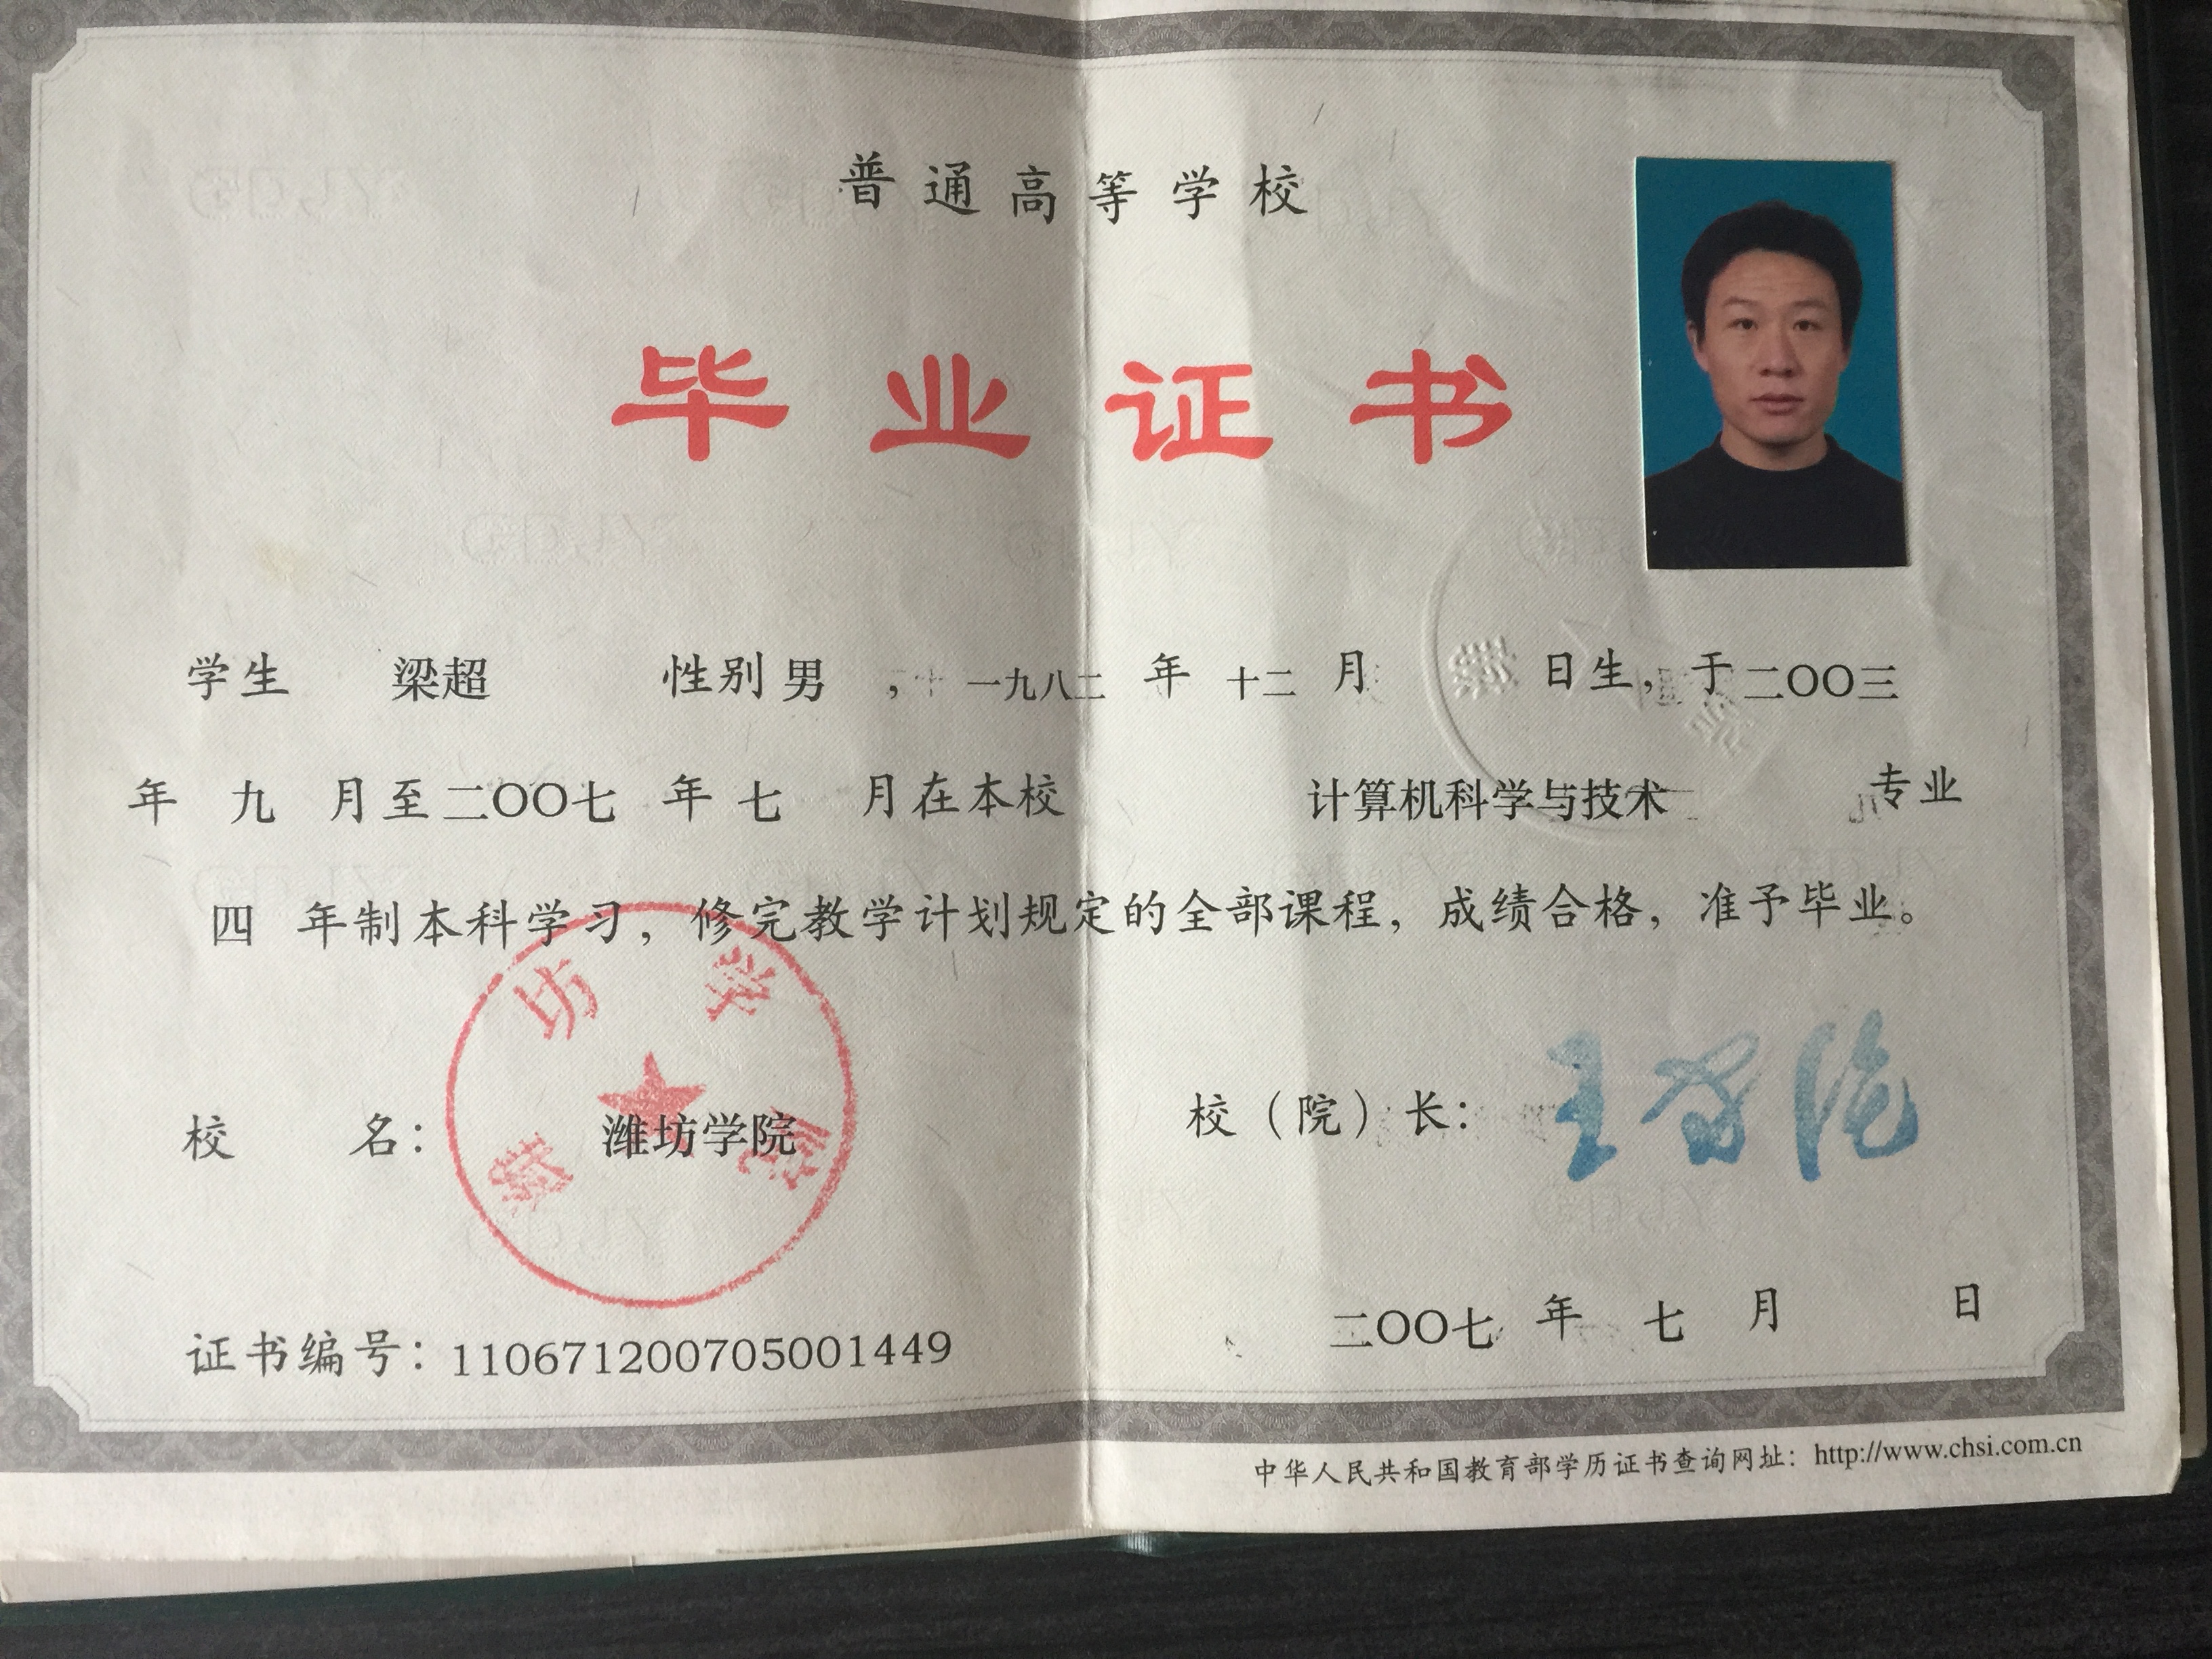 普通高等学校
毕业证书
学生 梁超 性别 男 ，一九八二 年 十二 月 日生，于 二〇〇三
年 九 月至 二〇〇七 年 七 月在本校 计算机科学与技术 专业
四 年制本科学习，修完教学计划规定的全部课程，成绩合格，准予毕业。
潍坊学院
校 名： 潍坊学院 校（院）长：
证书编号：110671200705001449 二〇〇七 年 七 月 日
中华人民共和国教育部学历证书查询网址：http://www.chsi.com.cn